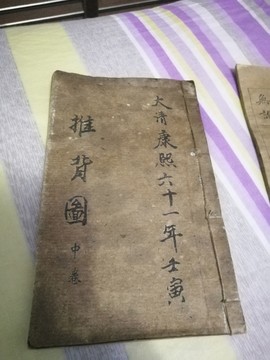 大清康熙六十一年壬寅
推背圖
中卷